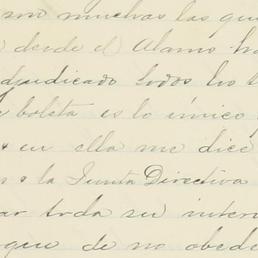 mo muchas las que
desde el Alamo ha
djudicado todos los t
boleta es lo único
en ella me dice
s a la Junta Directiva
ar toda su inter
que de no obede